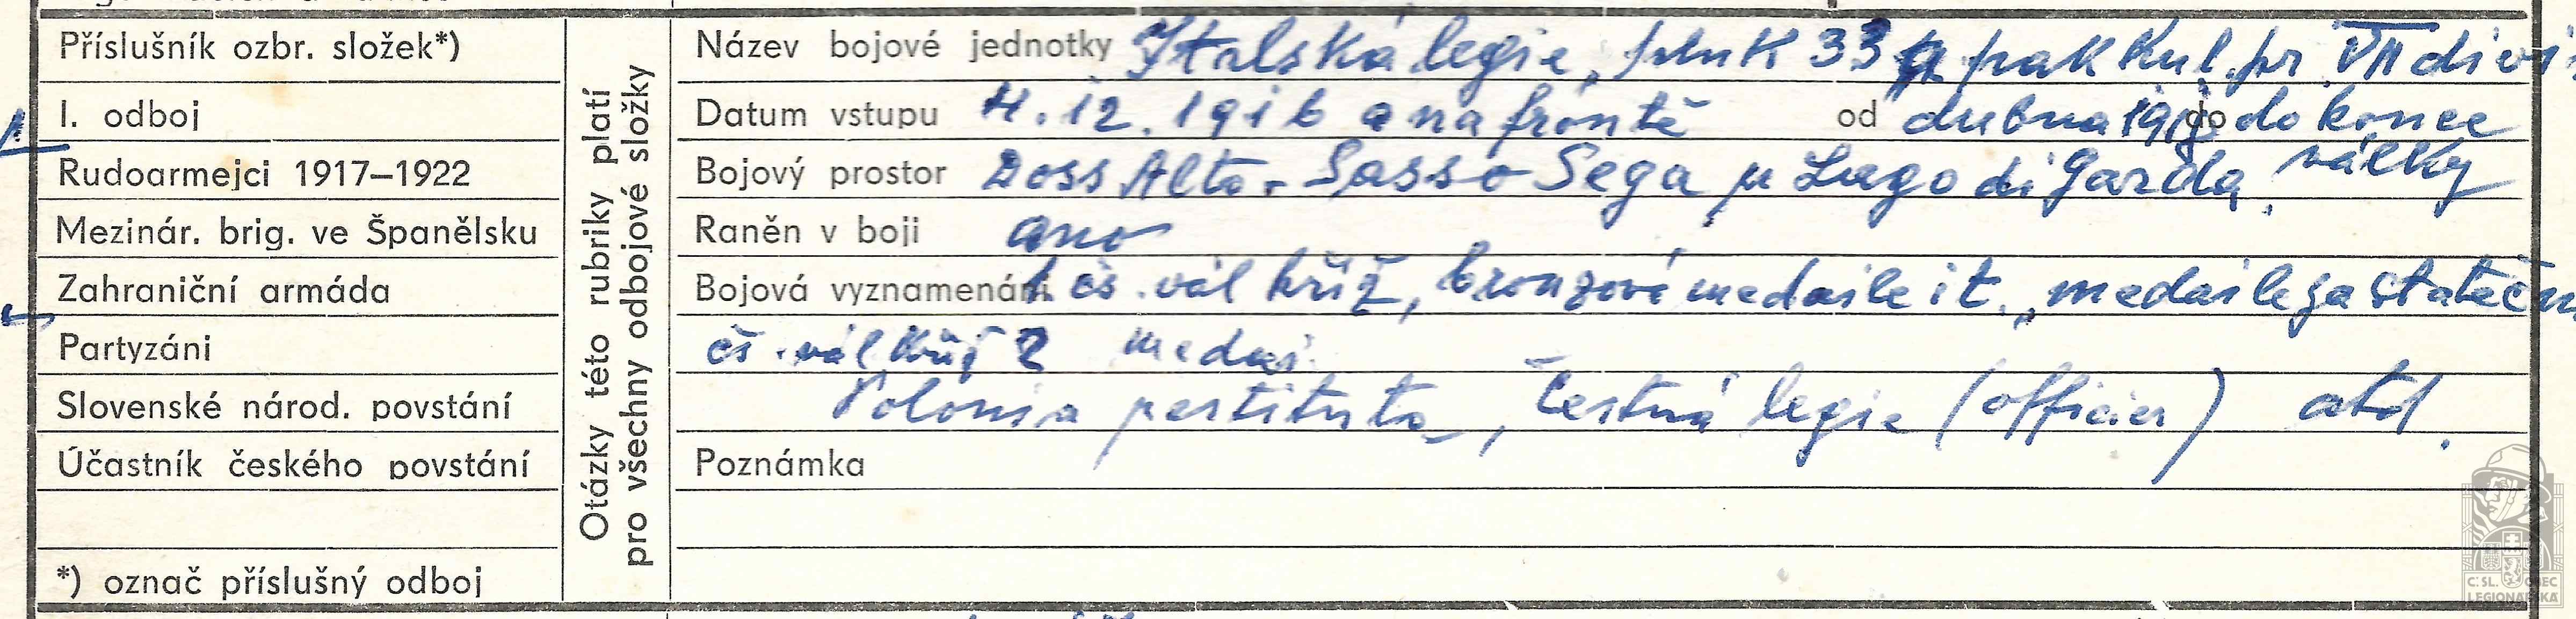 Příslušník ozbr. složek*)
I. odboj
Rudoarmejci 1917–1922
Mezinár. brig. ve Španělsku
Zahraniční armáda
Partyzáni
Slovenské národ. povstání
Účastník českého povstání
*) označ příslušný odboj
Otázky této rubriky platí
pro všechny odbojové složky
Název bojové jednotky Italská legie, pluk 33 a pak Kul. pr. VII divi
Datum vstupu 4.12.1916 a na frontě od dubna 1918 do do konce
války
Bojový prostor Doss Alto - Sasso Sega u Lago di Garda.
Raněn v boji ano
Bojová vyznamenání 1 čs. vál kříž, bronzová medaile it., medaile za statečn
čs. vál kříž 2 medai.
Polonia restituta, Čestná legie (officier) atd.
Poznámka
Č.SL. OBEC
LEGIONÁŘSKÁ